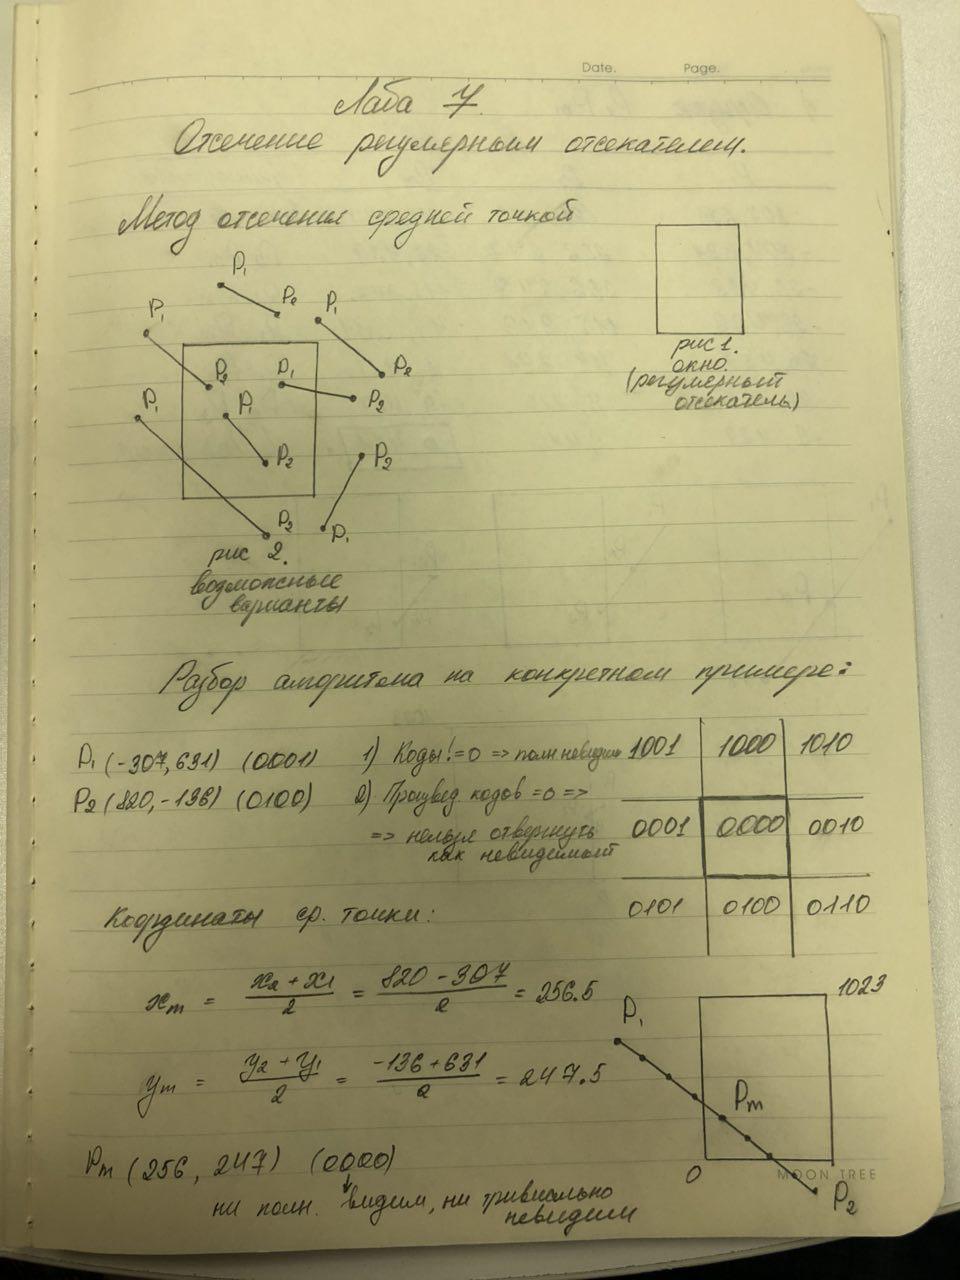 Date. Page.
Лаба 7.
Отсечение регулярным отсекателем.
Метод отсечения средней точкой
P₁
P₂
P₁
P₁
P₂
P₁
P₂
P₁
P₁
P₂
P₂
P₂
P₂
P₁
рис 1.
окно.
(регулярный
отсекатель)
рис 2.
возможные
варианты
Разбор алгоритма на конкретном примере:
P₁ (-307, 631) (0001)
P₂ (820, -136) (0100)
1) Коды != 0 => полн невидим
2) Произвед. кодов = 0 =>
=> нельзя отвергнуть
как невидимый
1001 1000 1010
0001 0000 0010
0101 0100 0110
Координаты ср. точки:
xₘ = (x₂ + x₁)/2 = (820 - 307)/2 = 256.5
yₘ = (y₂ + y₁)/2 = (-136 + 631)/2 = 247.5
Pₘ (256, 247) (0000)
ни полн. видим, ни тривиально
невидим
1023
P₁
Pₘ
0
MOON TREE
P₂